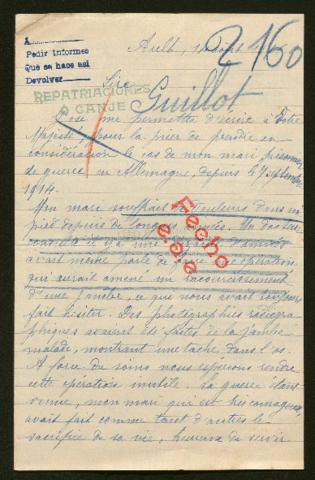 A
Pedir informes
Que se hace así
Devolver
REPATRIACIONES
O CANJE
Ault, 
2160
Sire
Guillot
J'ose me permettre d'écrire à Votre
Majesté pour la prier de prendre en
considération le cas de mon mari prisonnier
de guerre en Allemagne, depuis le 7 Septembre
1914.
Mon mari souffrait d'ailleurs d'un
pied depuis de longues années. Un docteur
avait même parlé de faire une opération
qui aurait amené un raccourcissement
d'une jambe, ce que nous avait toujours
fait hésiter. Des photographies radiogra-
phiques avaient été faites de la jambe
malade, montrant une tache dans l'os.
A force de soins nous espérions rendre
cette opération inutile. La guerre étant
venue, mon mari qui est très courageux,
avait fait comme tant d'autres le
sacrifice de sa vie, heureux de servir
Fecho